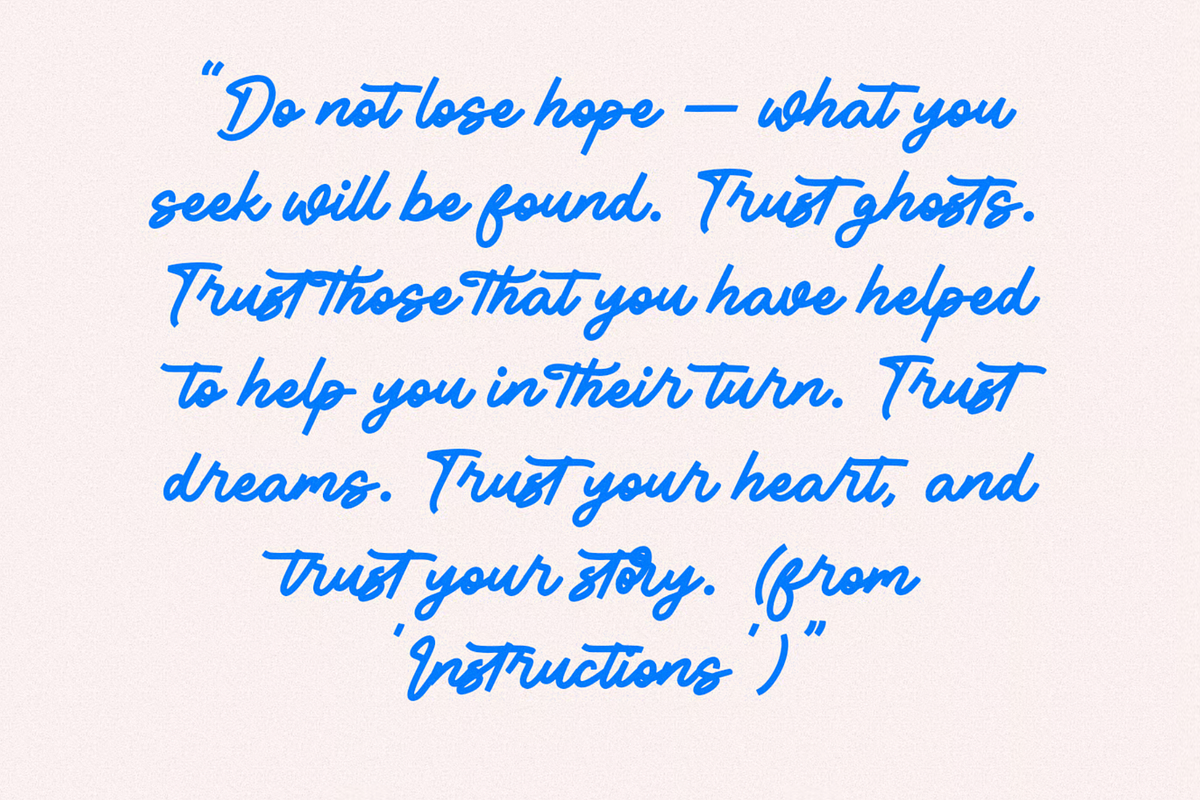 "Do not lose hope — what you
seek will be found. Trust ghosts.
Trust those that you have helped
to help you in their turn. Trust
dreams. Trust your heart, and
trust your story. (from
'Instructions')"